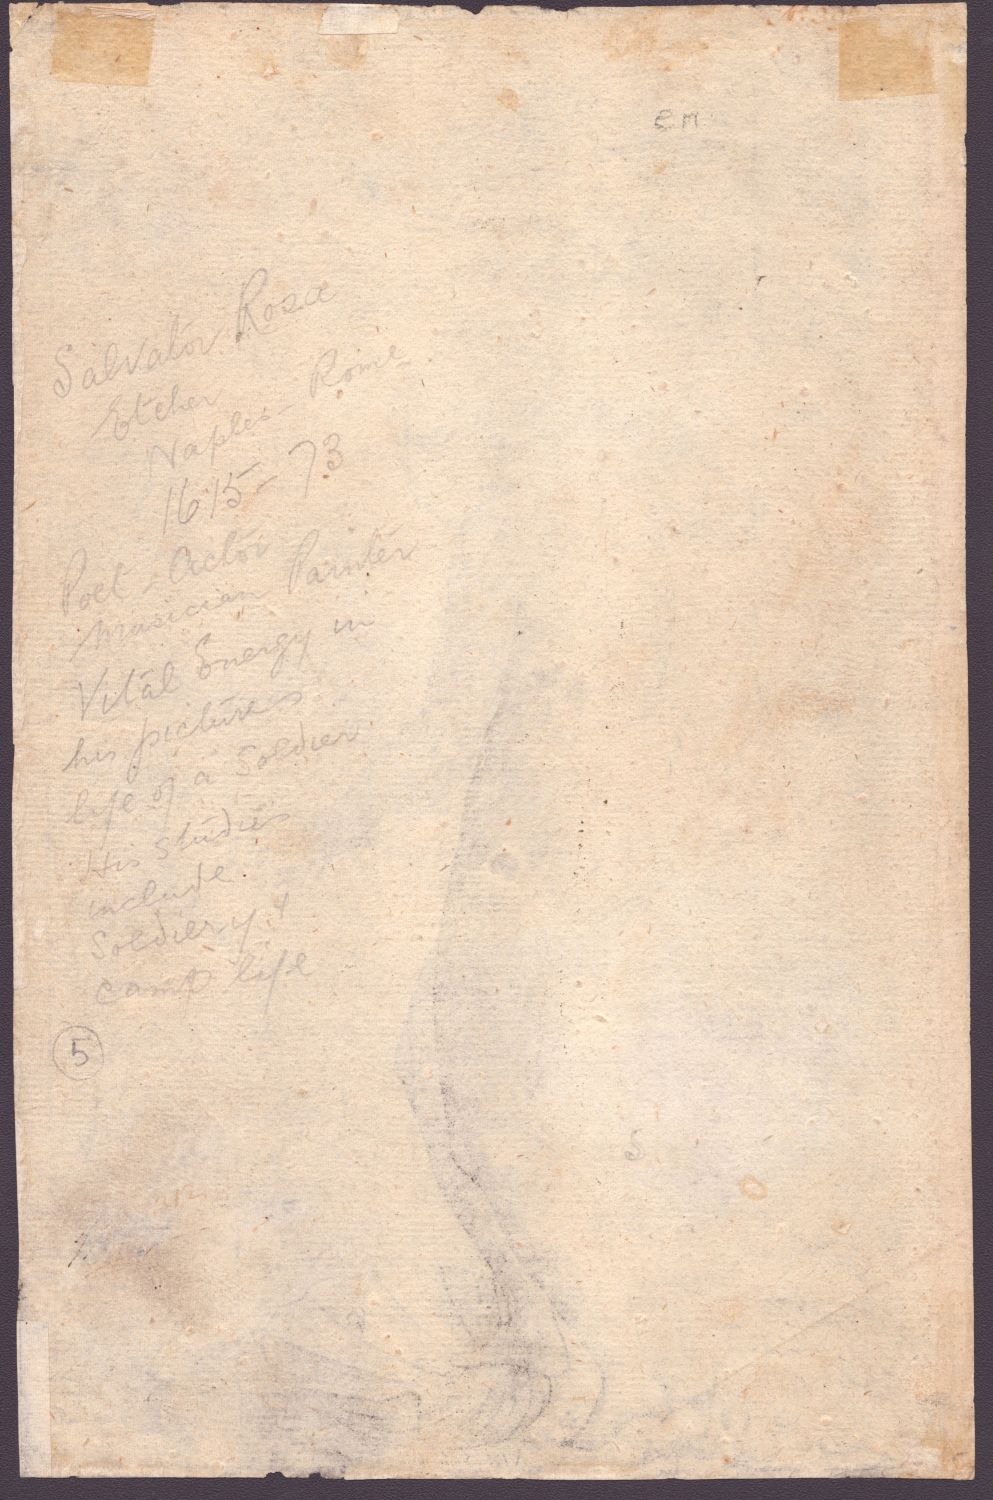 em
Salvator Rosa
Etcher
Naples - Rome
1615 - 73
Poet - Actor
Musician Painter
Vital Energy in
his pictures
life of a Soldier
His studies
include
Soldiery &
camp life
5
S